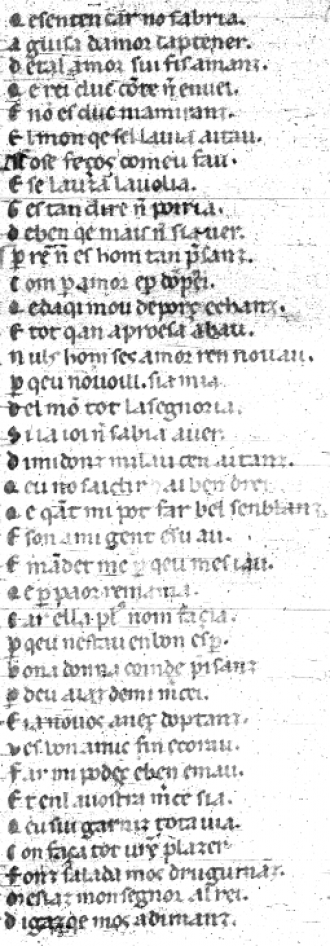 a esenten car no sabria.
a guisa damor captener.
d etal amor sui fis amanz.
q e rei duc cōte ñ enuei.
E no es duc mamiranz.
E l mon qe sel lauia aitau.
se feços comeu fau.
E se lauzā lauolia.
G es tan dire ñ poiria.
d eben qe mais ñ sia uer.
p re ñ es hom tan p̄sanz.
C om p amor ep dōpnei.
q edaqi mou deporç echanz.
E tot qan aproesa abau.
n uls hom ses amor ren nouau.
p qeu nouoill. sia mia.
d el mō tot lasegnoria.
S i ia ioi ñ sabia auer.
d imidonz milau cen aitanz.
q eu no sai dir ai ben drei
q e qāt mi pot far bel senblanz
E son ami gent esu au.
E māder me p qeu mes iau.
q e p paor remania.
c ar ella plꝰ nom façia.
P qeu nestau en bon esp.
b ona donna coinde pisanz
p deu aiaz demi m̄cei.
E ia nouos aneç doptanz.
v es uon amic fin ecorau.
F ar mi podeç eben emau.
E t enl auostra m̄ce sia.
q eu sui garniz tota uia.
C on faça tot ur̄e plazer
F onz salada mos drugumanz.
m esiaz monsegnor al rei.
D igaz qe mos adimanz.